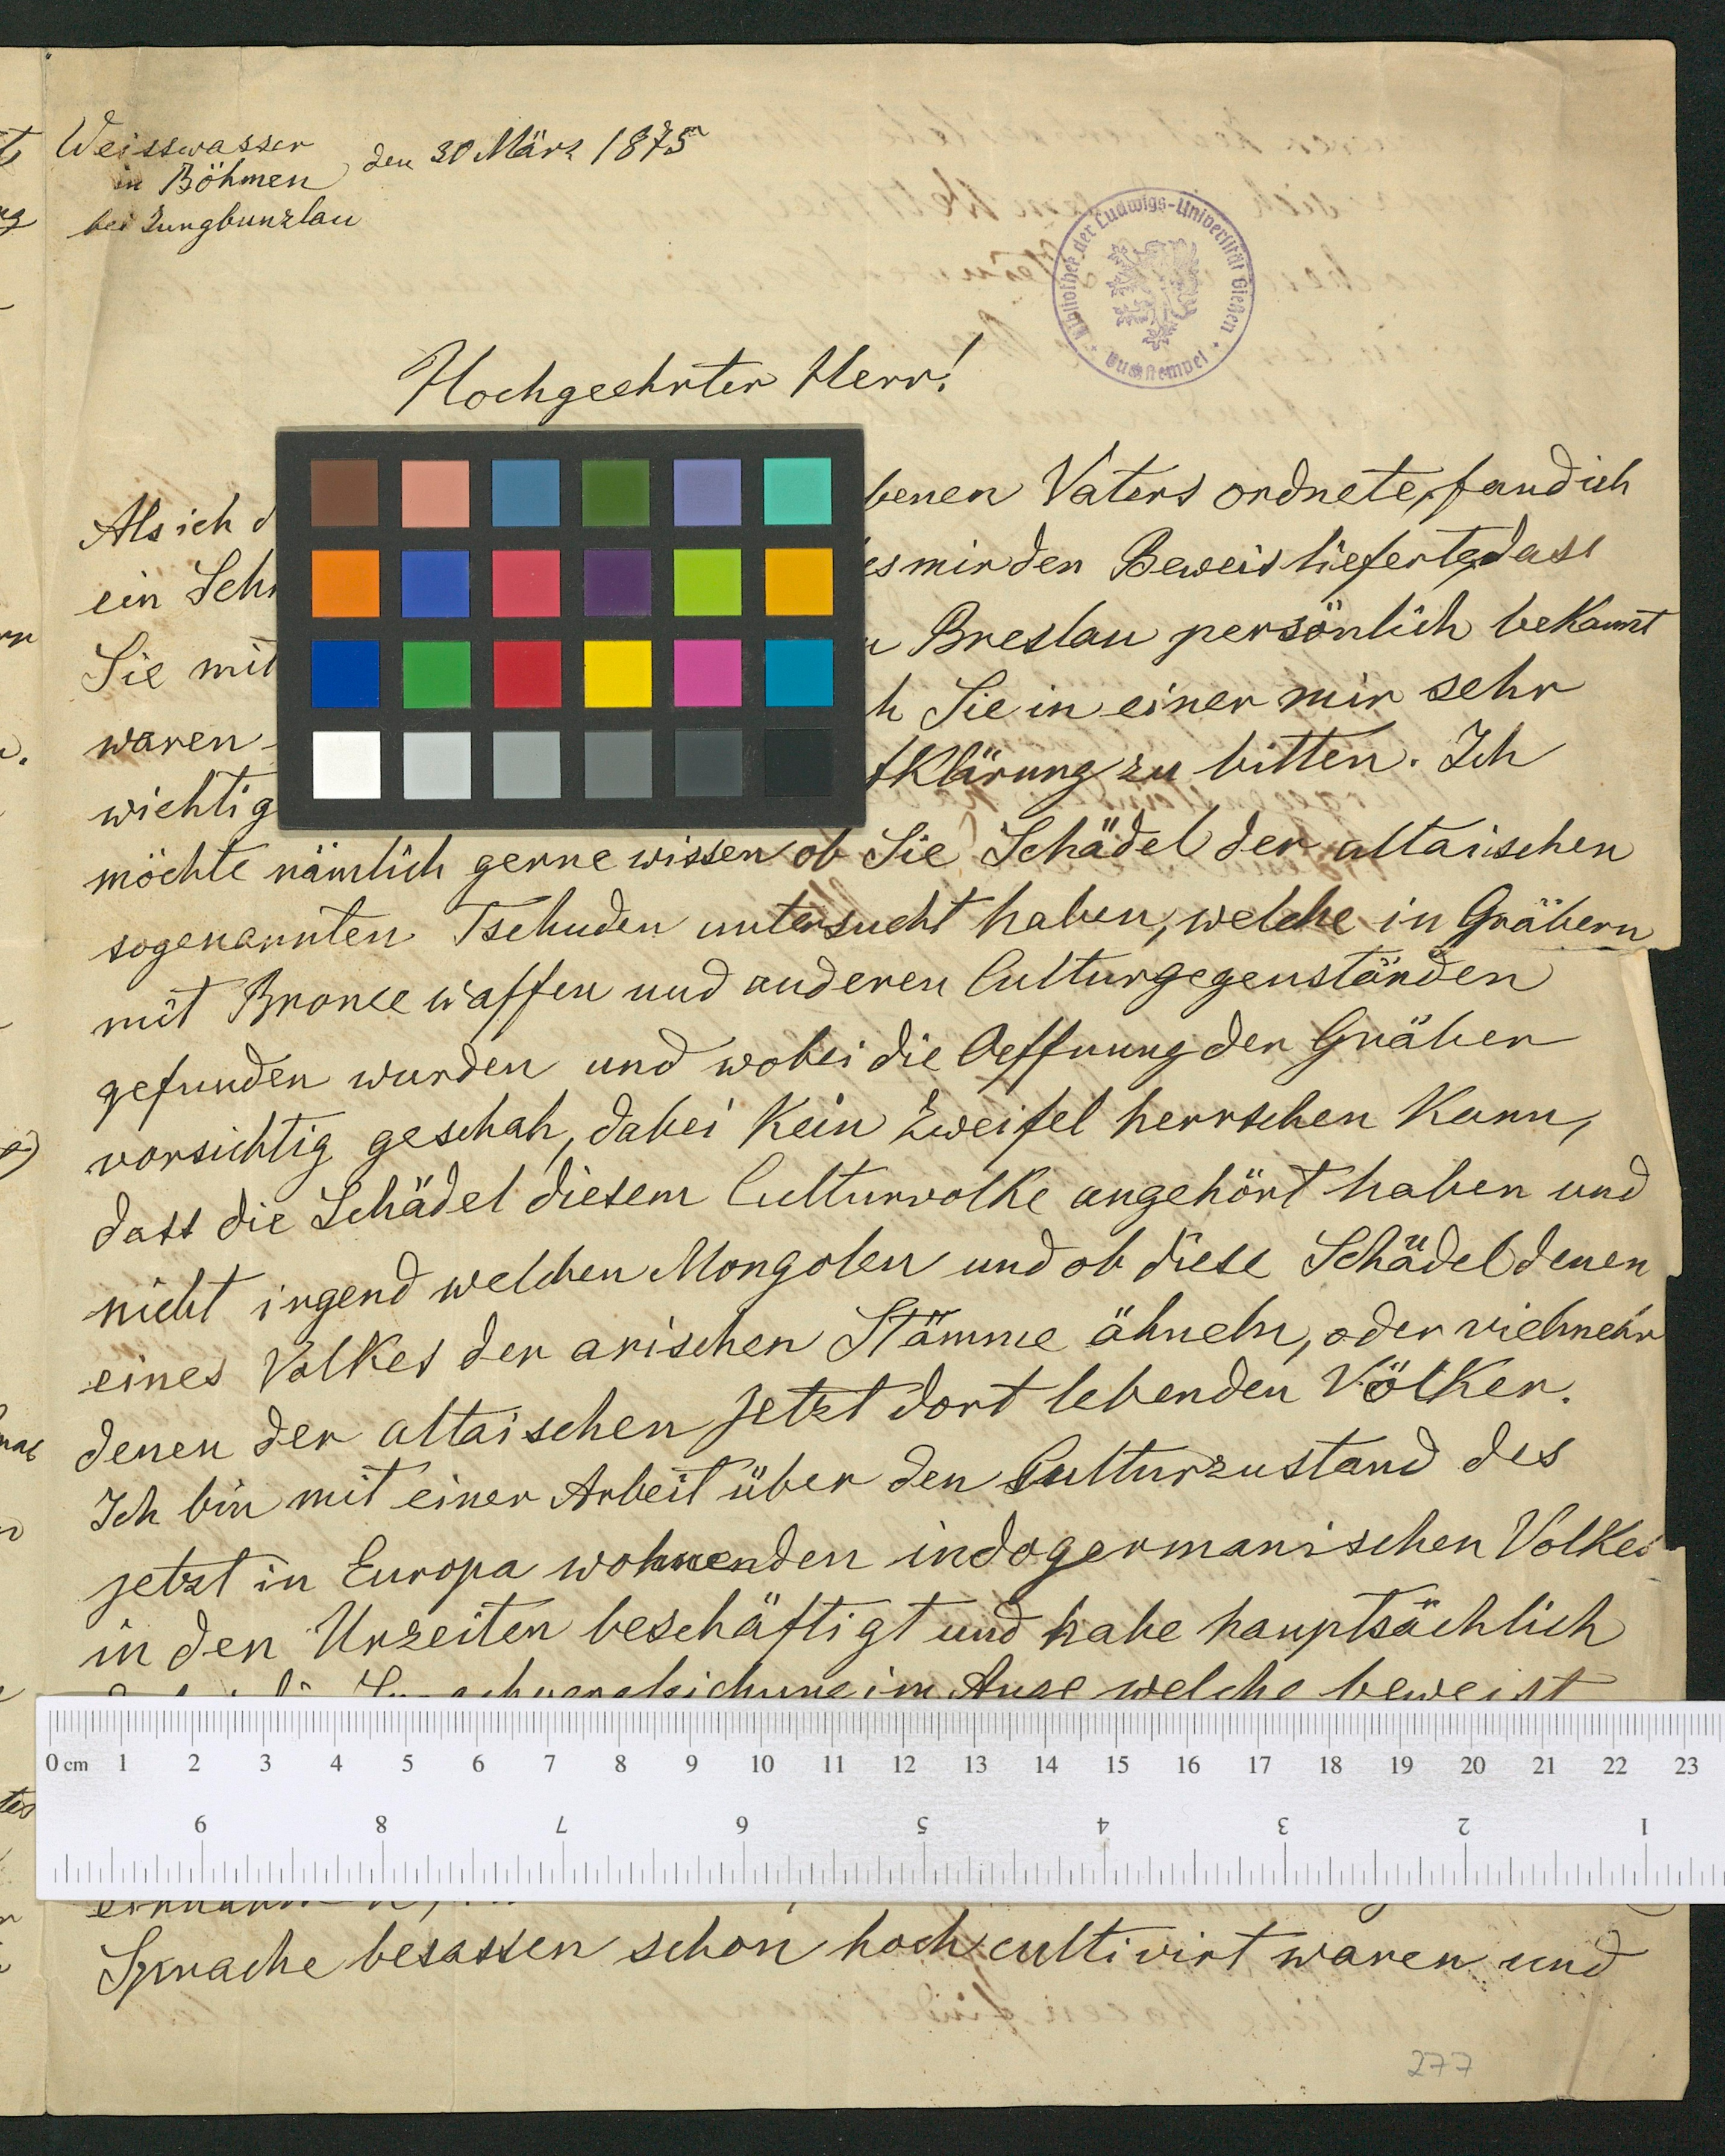 Weisswasser
in Böhmen den 30 März 1875
bei Jungbunzlau
Bibliothek der Ludwigs-Universität Gießen
Buchstempel
Hochgeehrter Herr!
Als ich d benen Vaters ordnete, fand ich
ein Sch es mir den Beweis lieferte, dass
Sie mit Breslau persönlich bekannt
waren h Sie in einer mir sehr
wichtig fklärung zu bitten. Ich
möchte nämlich gerne wissen ob Sie Schädel der altaischen
sogenannten Tschuden untersucht haben, welche in Gräbern
mit Broncewaffen und anderen Culturgegenständen
gefunden wurden und wobei die Oeffnung der Gräber
vorsichtig geschah, dabei kein Zweifel herrschen kann,
dass die Schädel diesem Culturvolke angehört haben und
nicht irgend welchen Mongolen und ob diese Schädel denen
eines Volkes der arischen Stämme ähneln, oder vielmehr
denen der altaischen jetzt dort lebenden Völker.
Ich bin mit einer Arbeit über den Culturzustand des
jetzt in Europa wohnenden indogermanischen Volkes
in den Urzeiten beschäftigt und habe hauptsächlich
im Auge welche beweist
0 cm 1 2 3 4 5 6 7 8 9 10 11 12 13 14 15 16 17 18 19 20 21 22 23
9 8 7 6 5 4 3 2 1
Sprache besassen schon hoch cultivirt waren und
277